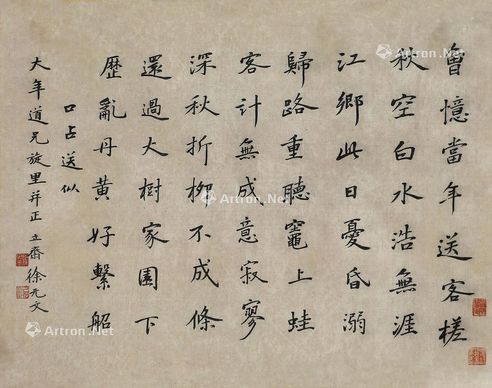 曾憶當年送客槎
秋空白水浩無涯
江鄉此日憂昏溺
歸路重聽竈上蛙
客計無成意寂寥
深秋折柳不成條
還過大樹家園下
歷亂丹黃好繫船
口占送似
大年道兄旋里并正 立齋徐元文
Artron.Net
Artron.Net
Artron.Net
Artron.Net
Artron.Net